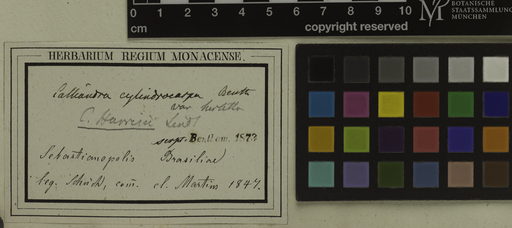 0 1 2 3 4 5 6 7 8 9 10
cm
copyright reserved
BOTANISCHE
STAATSSAMMLUNG
MÜNCHEN
HERBARIUM REGIUM MONACENSE.
Calliandra cylindrocarpa Benth
var
C. Harrisii Lindl
scrps. Benth em. 1873
Sebastianopolis Brasiliae
leg. Schüch, com. cl. Martius 1847.